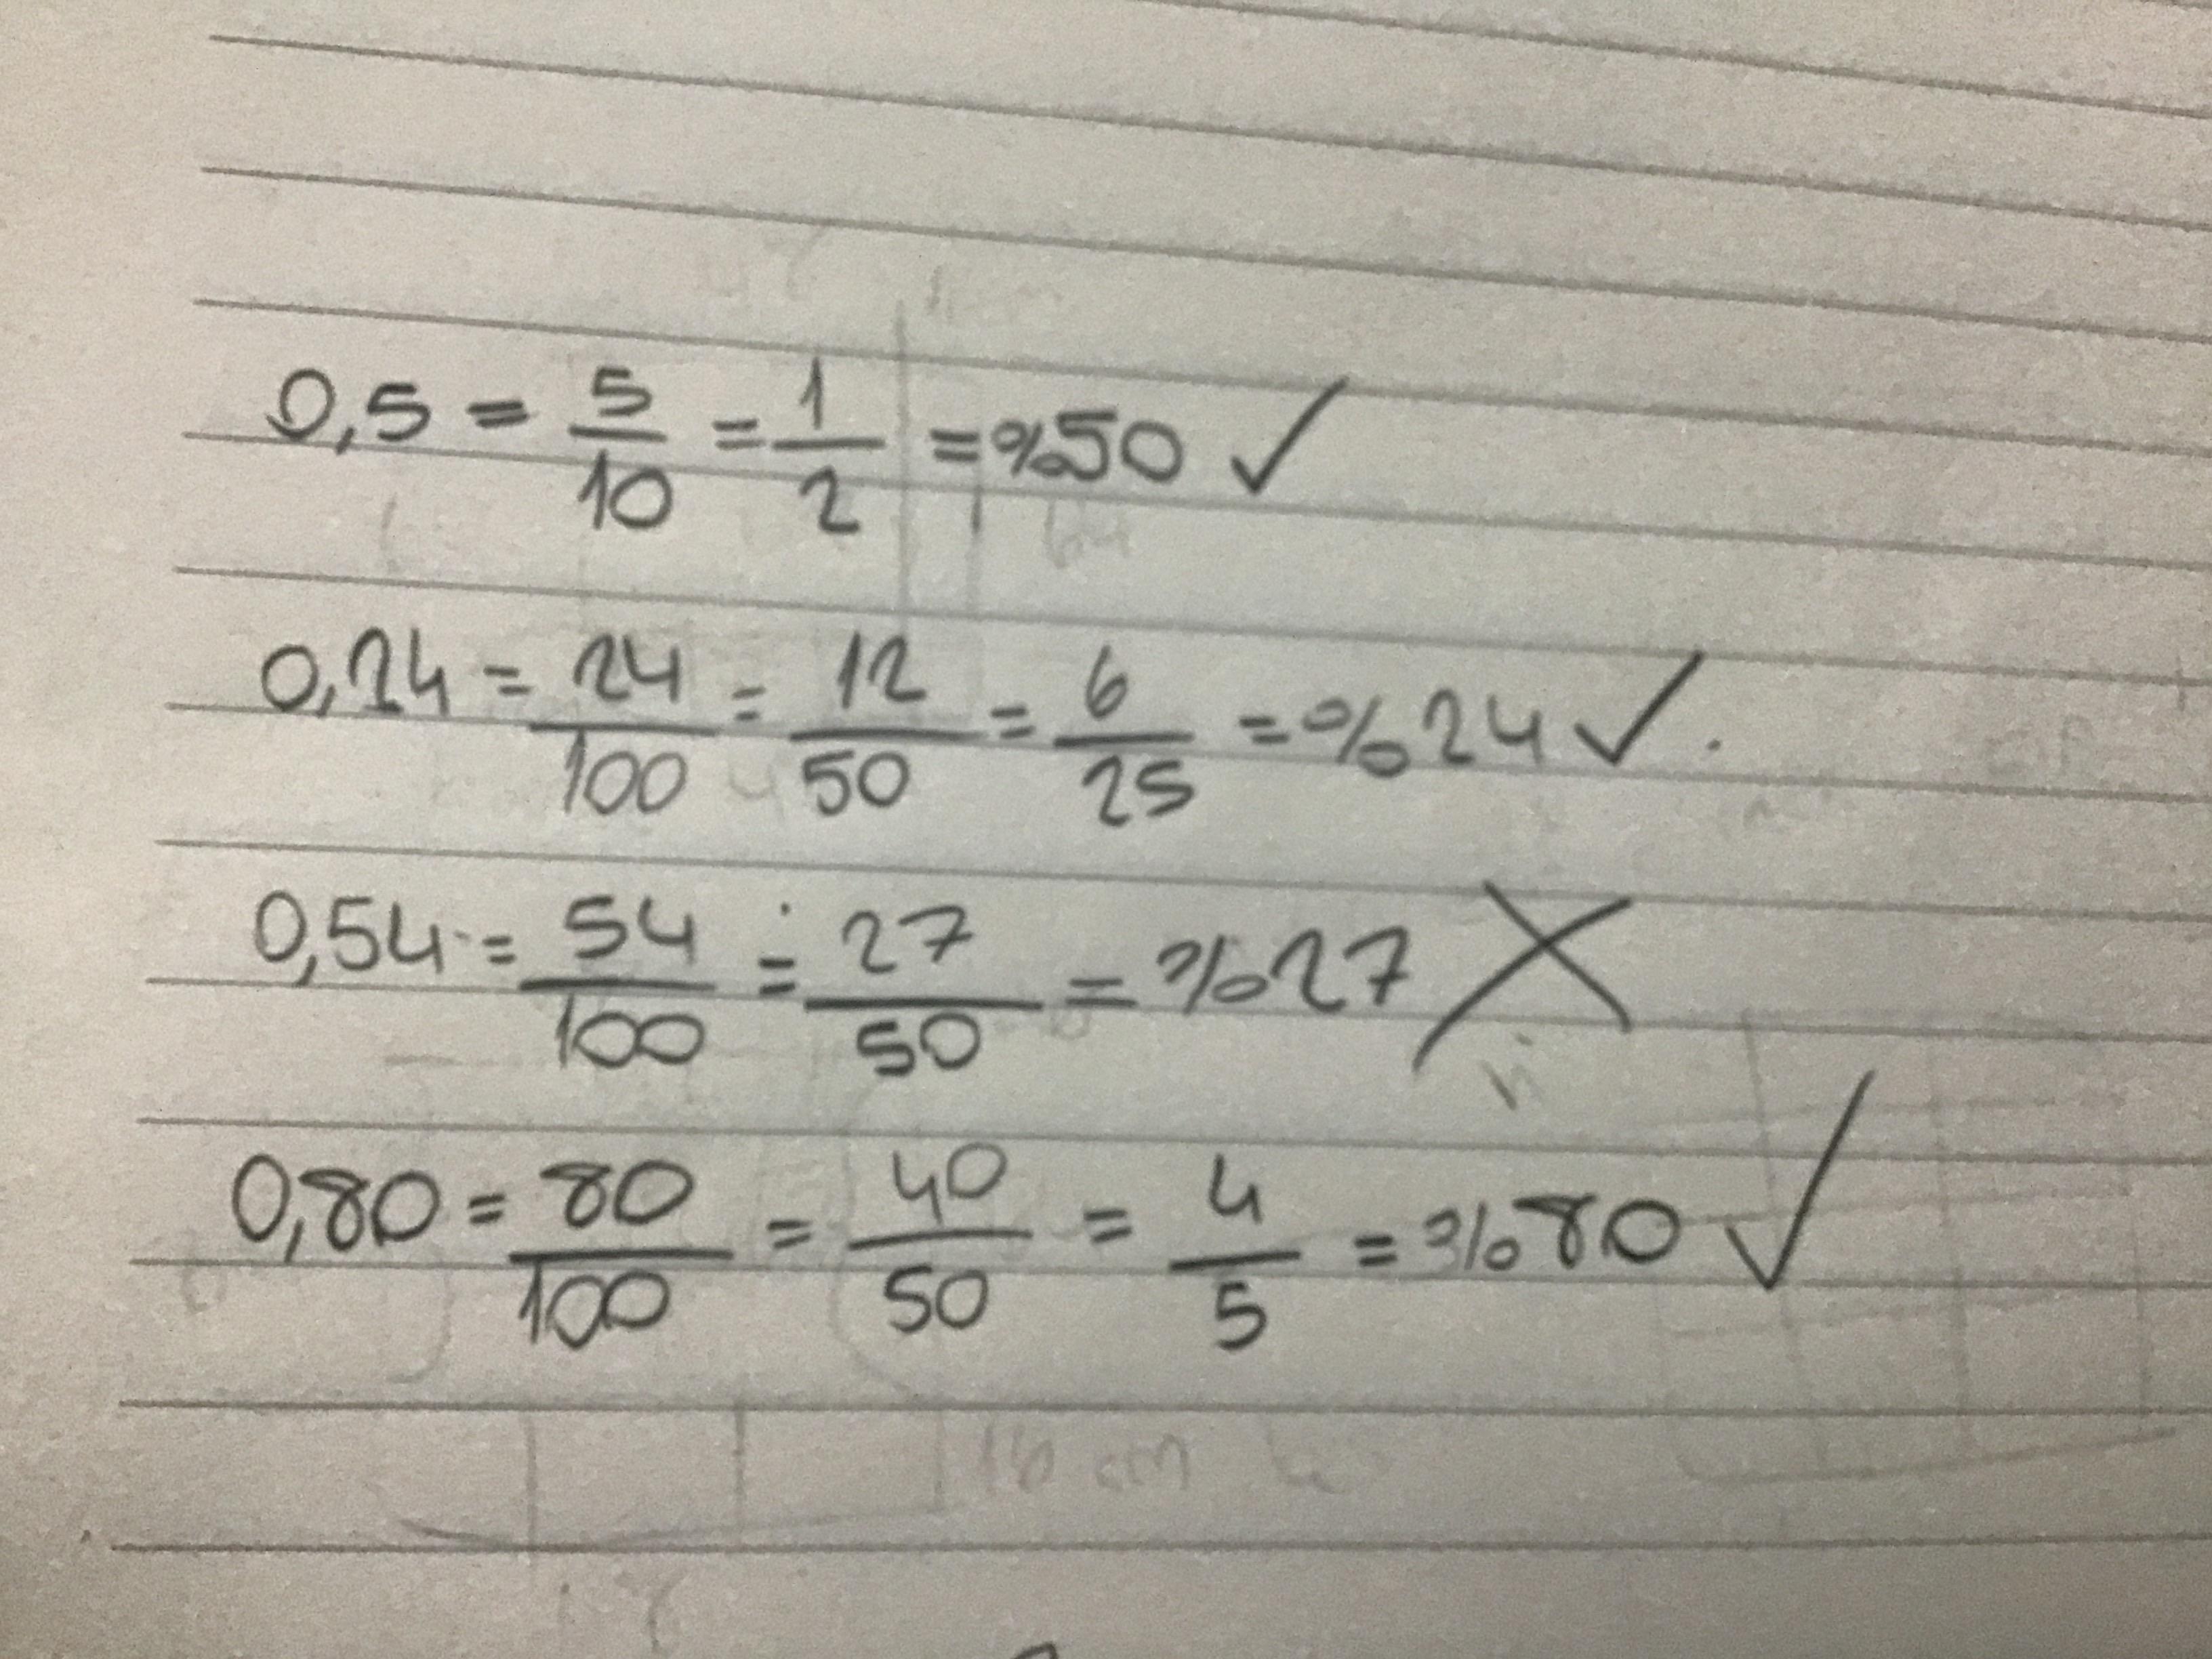 0,5 = 5/10 = 1/2 = %50 ✓
0,24 = 24/100 = 12/50 = 6/25 = %24 ✓.
0,54 = 54/100 = 27/50 = %27 ✗
0,80 = 80/100 = 40/50 = 4/5 = %80 ✓
16 cm